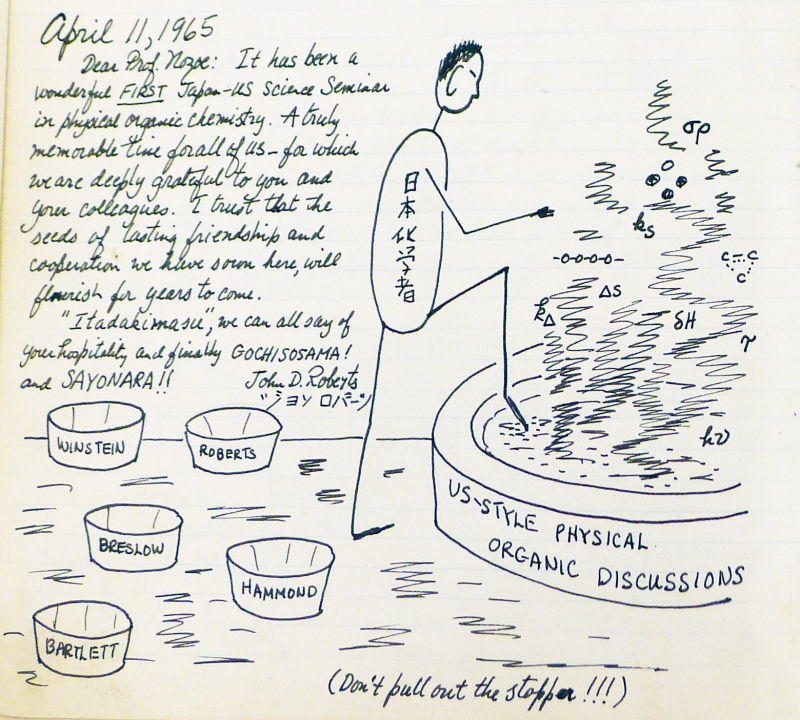 April 11, 1965
Dear Prof. Nozoe: It has been a
wonderful FIRST Japan-US Science Seminar
in physical organic chemistry. A truly
memorable time for all of us - for which
we are deeply grateful to you and
your colleagues. I trust that the
seeds of lasting friendship and
cooperation we have sown here, will
flourish for years to come.
"Itadakimasu", we can all say of
your hospitality and finally GOCHISOSAMA!
and SAYONARA!!
John D. Roberts
ジョン ロバーツ
日本化学者
σρ
kₛ
-o-o-o-o-
C=C
C
ΔS
kΔ
δH
τ
hν
WINSTEIN
ROBERTS
BRESLOW
HAMMOND
BARTLETT
US-STYLE PHYSICAL
ORGANIC DISCUSSIONS
(Don't pull out the stopper!!!)